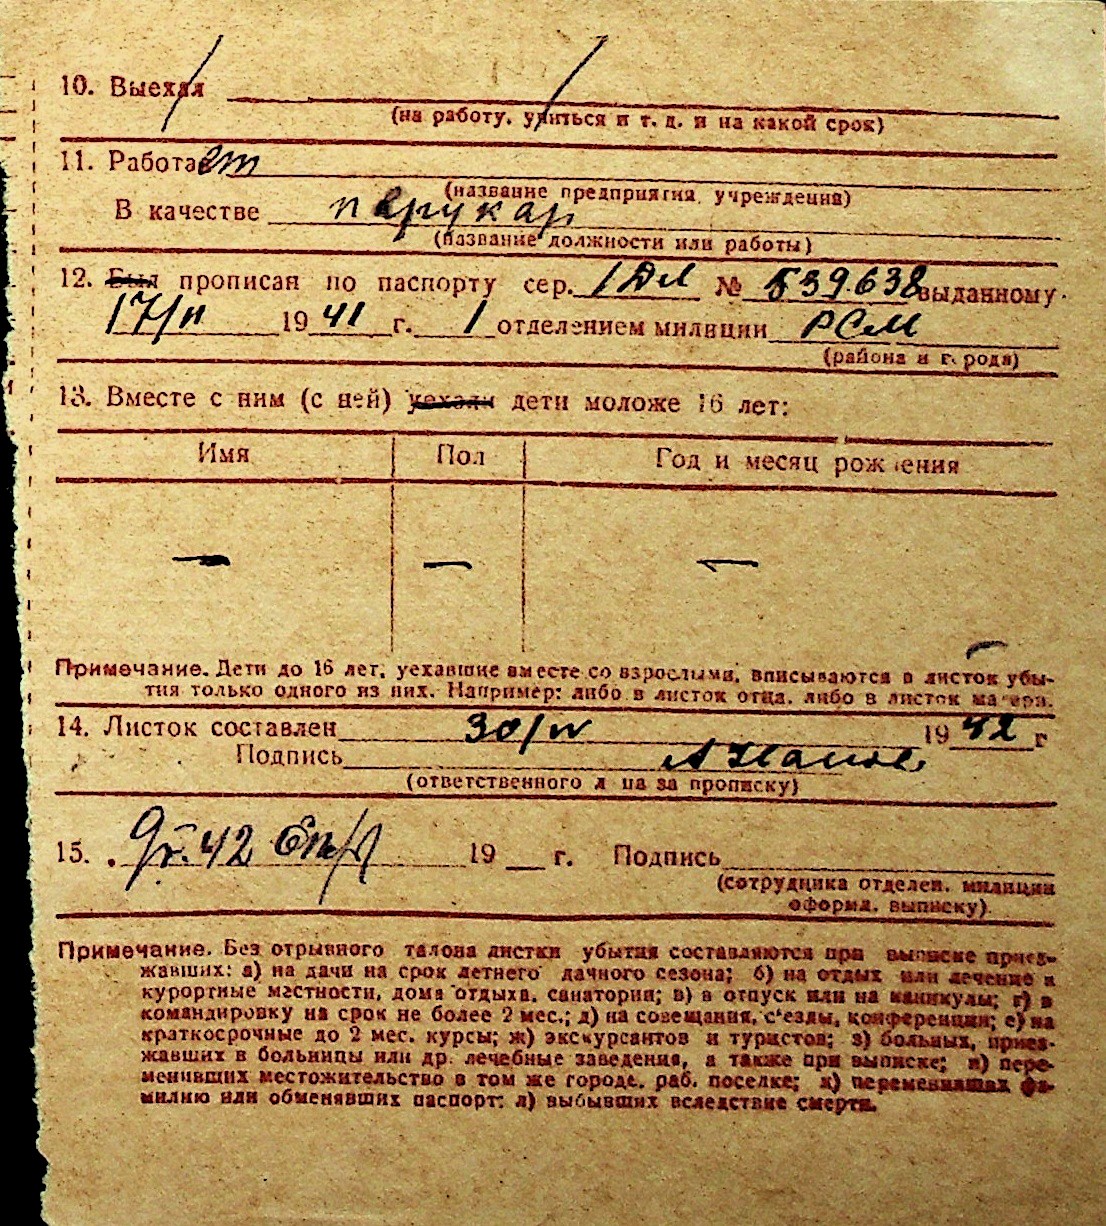 10. Выехал
(на работу, учиться и т. д. и на какой срок)
11. Работает
(название предприятия, учреждения)
В качестве парукар
(название должности или работы)
12. Был прописан по паспорту сер. 1 ДМ № 539.638 выданному
17/II 1941 г. 1 отделением милиции РСМ
(района и города)
13. Вместе с ним (с ней) уехали дети моложе 16 лет:
Имя Пол Год и месяц рождения
— — —
Примечание. Дети до 16 лет, уехавшие вместе со взрослыми, вписываются в листок убы-
тия только одного из них. Например: либо в листок отца, либо в листок матери.
14. Листок составлен 30/IV 1942 г
Подпись
(ответственного лица за прописку)
15. 42 19 г. Подпись
(сотрудника отделен. милиции
оформл. выписку).
Примечание. Без отрывного талона листки убытия составляются при выписке приез-
жавших: а) на дачи на срок летнего дачного сезона; б) на отдых или лечение в
курортные местности, дома отдыха, санатории; в) в отпуск или на каникулы; г) в
командировку на срок не более 2 мес.; д) на совещания, с'езды, конференции; е) на
краткосрочные до 2 мес. курсы; ж) экскурсантов и туристов; з) больных, приез-
жавших в больницы или др. лечебные заведения, а также при выписке; и) пере-
менивших местожительство в том же городе, раб. поселке; к) переменивших фа-
милию или обменявших паспорт; л) выбывших вследствие смерти.